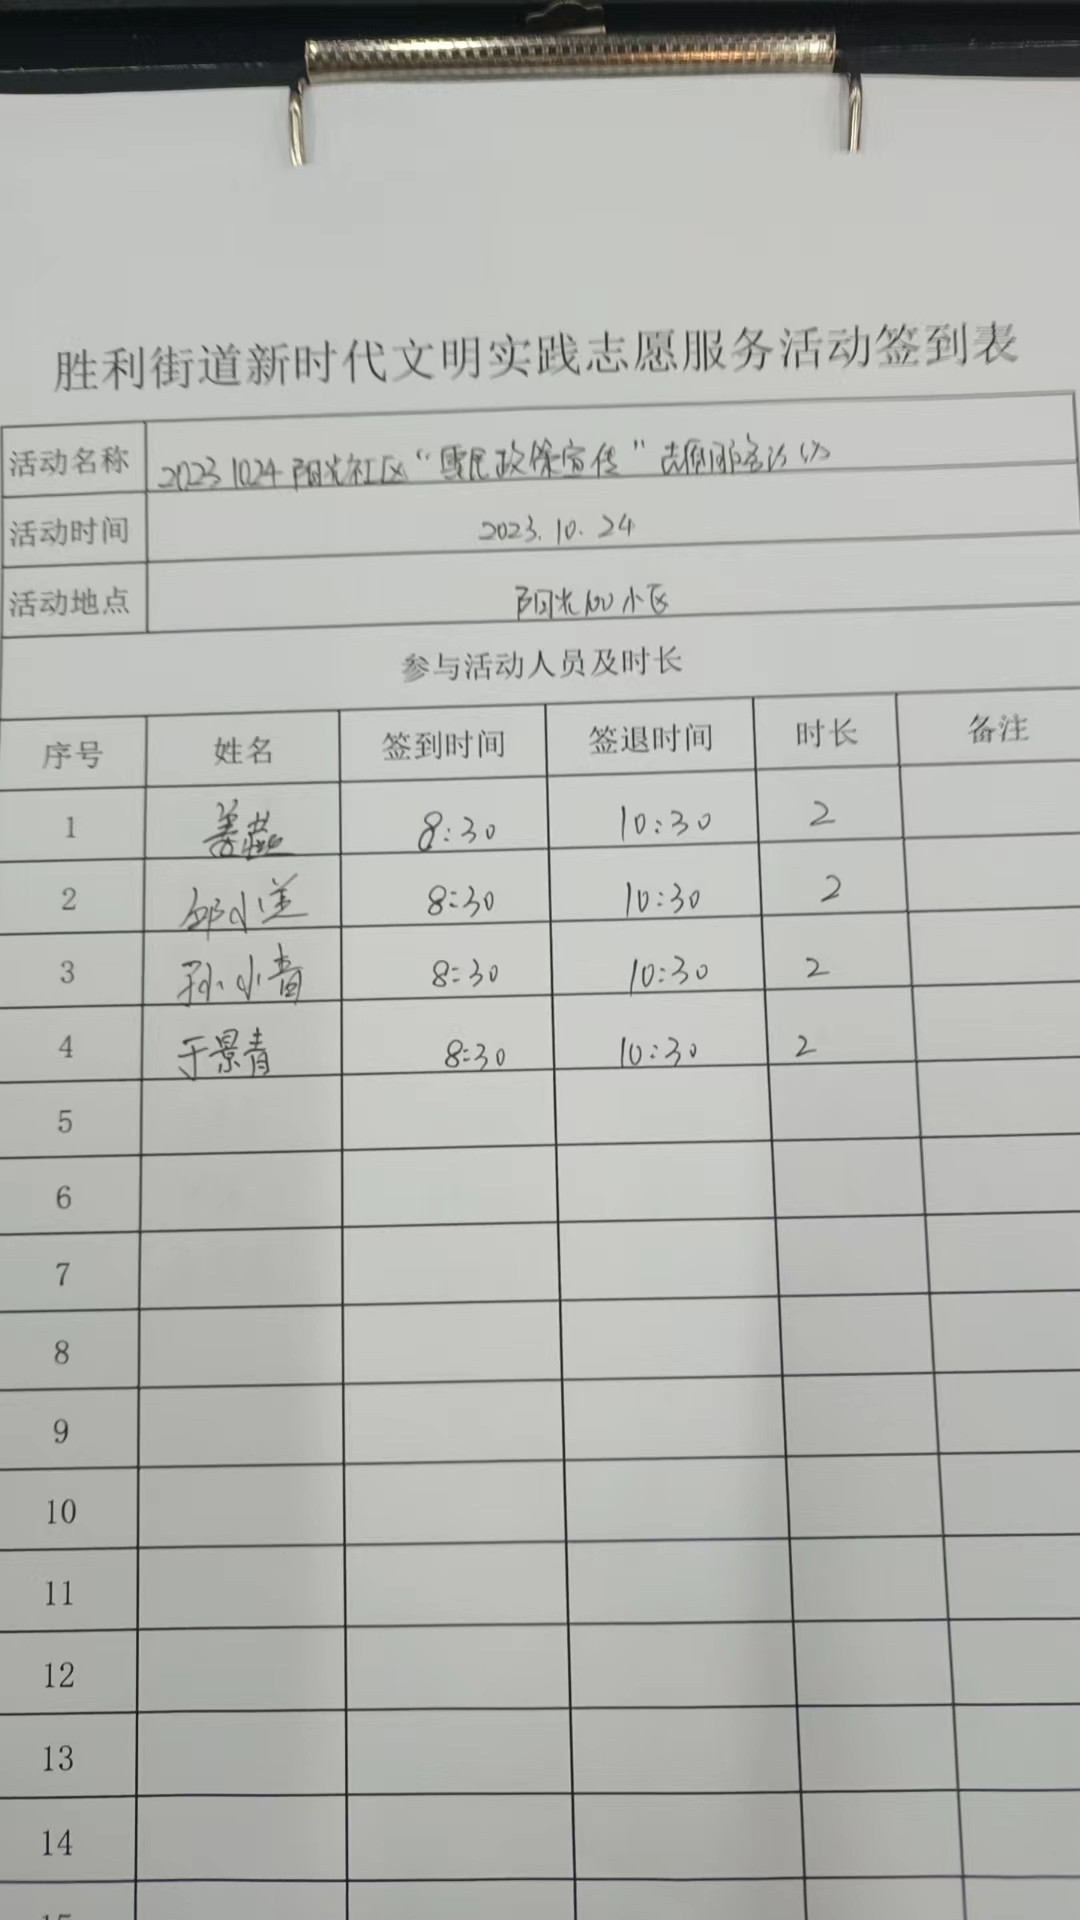 胜利街道新时代文明实践志愿服务活动签到表
活动名称 20231024阳光社区“惠民政策宣传”志愿服务活动
活动时间 2023.10.24
活动地点 阳光100小区
参与活动人员及时长
序号 姓名 签到时间 签退时间 时长 备注
1 姜燕 8:30 10:30 2
2 邱小莲 8:30 10:30 2
3 孙小青 8:30 10:30 2
4 于景青 8:30 10:30 2
5
6
7
8
9
10
11
12
13
14